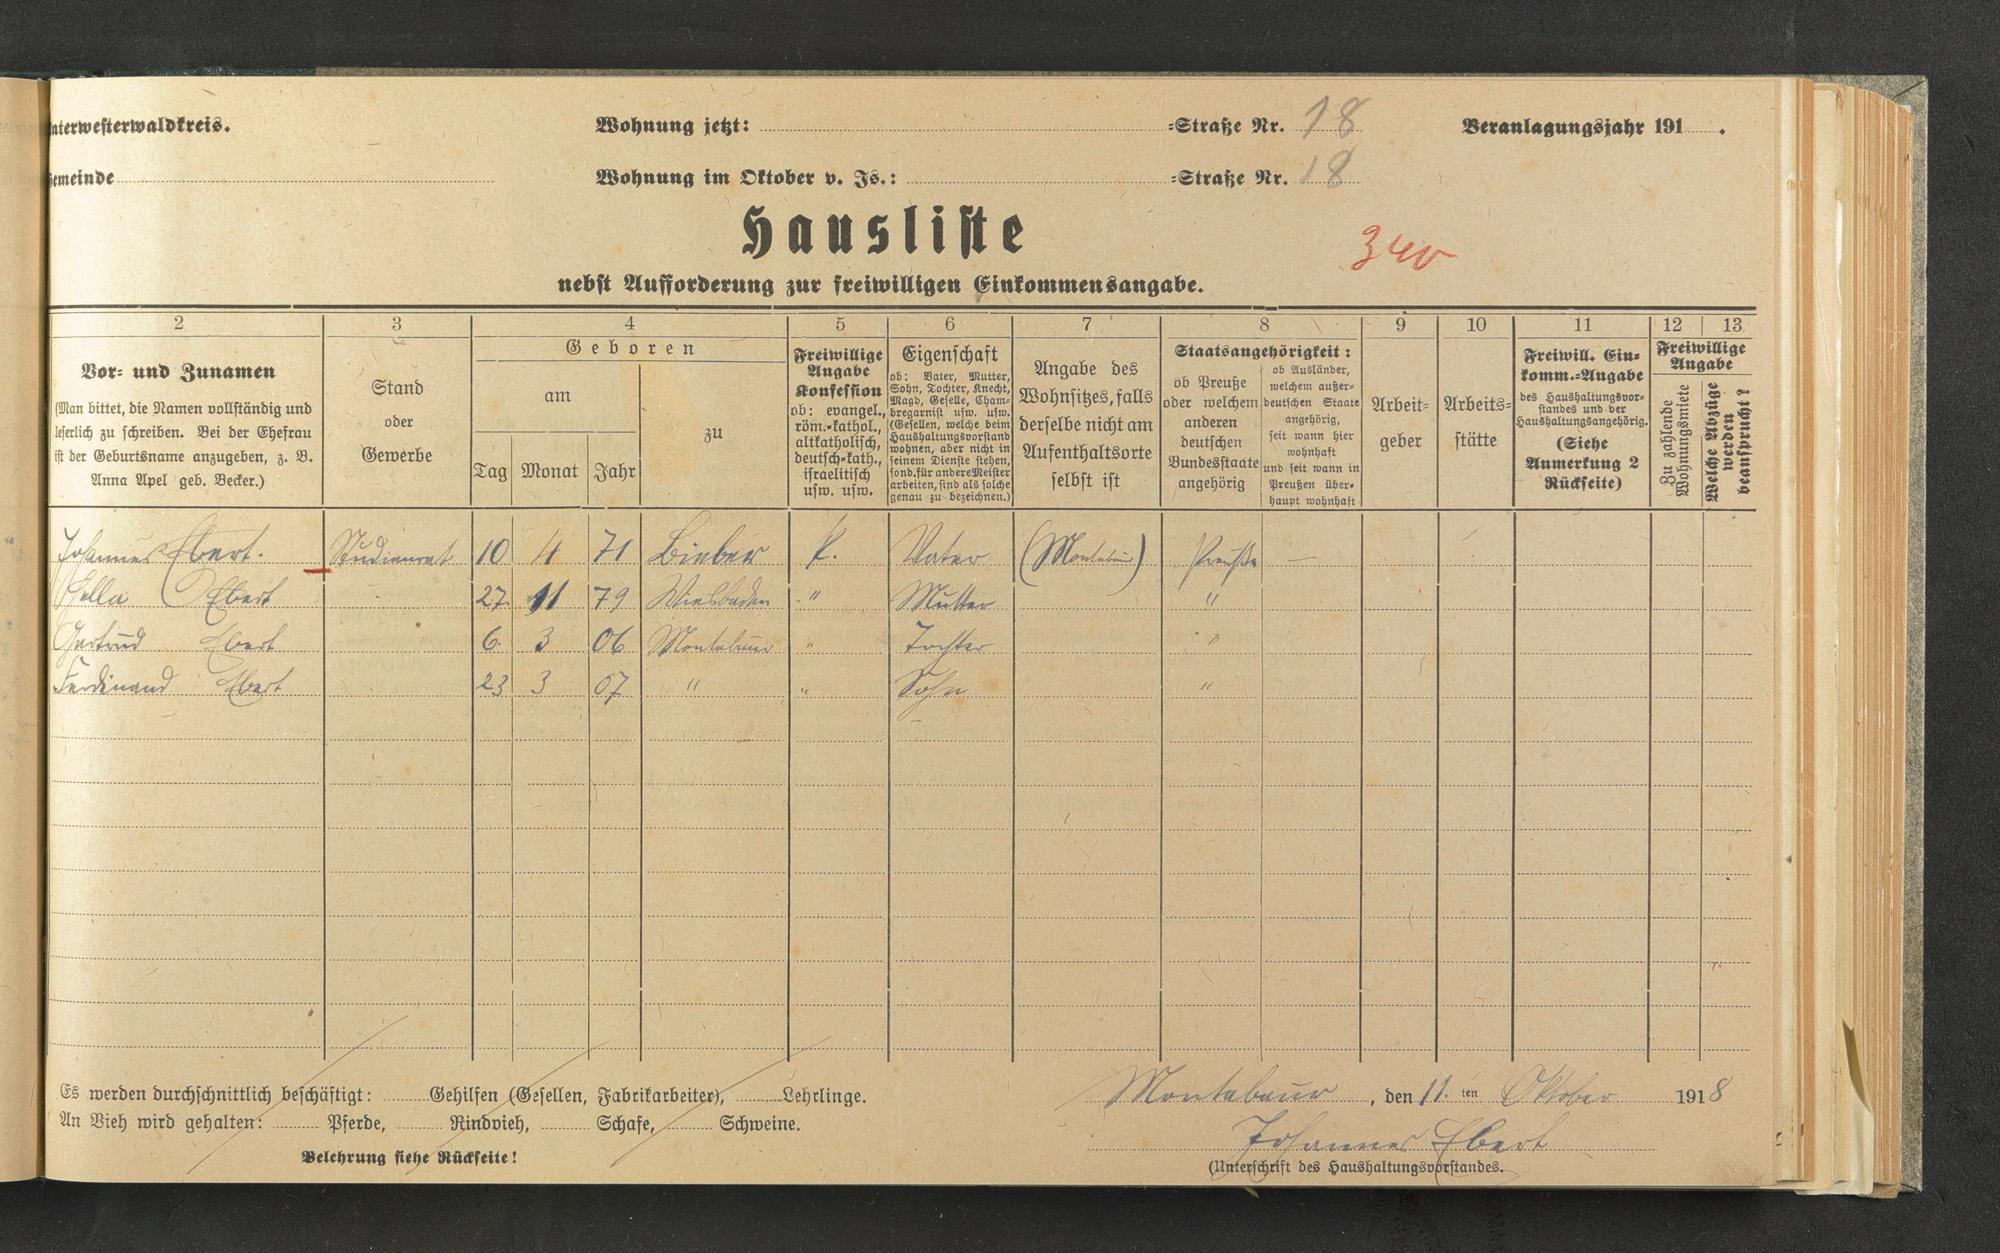 nterwesterwaldkreis. Wohnung jetzt: =Straße Nr. 18 Veranlagungsjahr 191 .
emeinde Wohnung im Oktober v. Js.: =Straße Nr. 18
Hausliste
340
nebst Aufforderung zur freiwilligen Einkommensangabe.
2 3 4 5 6 7 8 9 10 11 12 13
Vor- und Zunamen
(Man bittet, die Namen vollständig und
leserlich zu schreiben. Bei der Ehefrau
ist der Geburtsname anzugeben, z. B.
Anna Apel geb. Becker.)
Stand
oder
Gewerbe
Geboren
am
Tag Monat Jahr
zu
Freiwillige
Angabe
Konfession
ob: evangel.,
röm.-kathol.,
altkatholisch,
deutsch-kath.,
israelitisch
usw. usw.
Eigenschaft
ob: Vater, Mutter,
Sohn, Tochter, Knecht,
Magd, Geselle, Cham-
bregarnist usw. usw.
(Gesellen, welche beim
Haushaltungsvorstand
wohnen, aber nicht in
seinem Dienste stehen,
sond. für andere Meister
arbeiten, sind als solche
genau zu bezeichnen.)
Angabe des
Wohnsitzes, falls
derselbe nicht am
Aufenthaltsorte
selbst ist
Staatsangehörigkeit:
ob Preuße
oder welchem
anderen
deutschen
Bundesstaate
angehörig
ob Ausländer,
welchem außer-
deutschen Staate
angehörig,
seit wann hier
wohnhaft
und seit wann in
Preußen über-
haupt wohnhaft
Arbeit-
geber
Arbeits-
stätte
Freiwill. Ein-
komm.-Angabe
des Haushaltungsvor-
standes und der
Haushaltungsangehörig.
(Siehe
Anmerkung 2
Rückseite)
Freiwillige
Angabe
Zu zahlende
Wohnungsmiete
Welche Abzüge
werden
beansprucht?
Johannes Ebert. Studienrat 10 4 71 Bieber k. Vater (Montabaur) Preuße —
Ella Ebert 27. 11 79 Wiesbaden " Mutter "
Gertrud Ebert 6. 3 06 Montabaur " Tochter "
Ferdinand Ebert 23 3 07 " " Sohn "
Es werden durchschnittlich beschäftigt: Gehilfen (Gesellen, Fabrikarbeiter), Lehrlinge.
An Vieh wird gehalten: Pferde, Rindvieh, Schafe, Schweine.
Belehrung siehe Rückseite!
Montabaur, den 11. ten Oktober 1918
Johannes Ebert
(Unterschrift des Haushaltungsvorstandes.